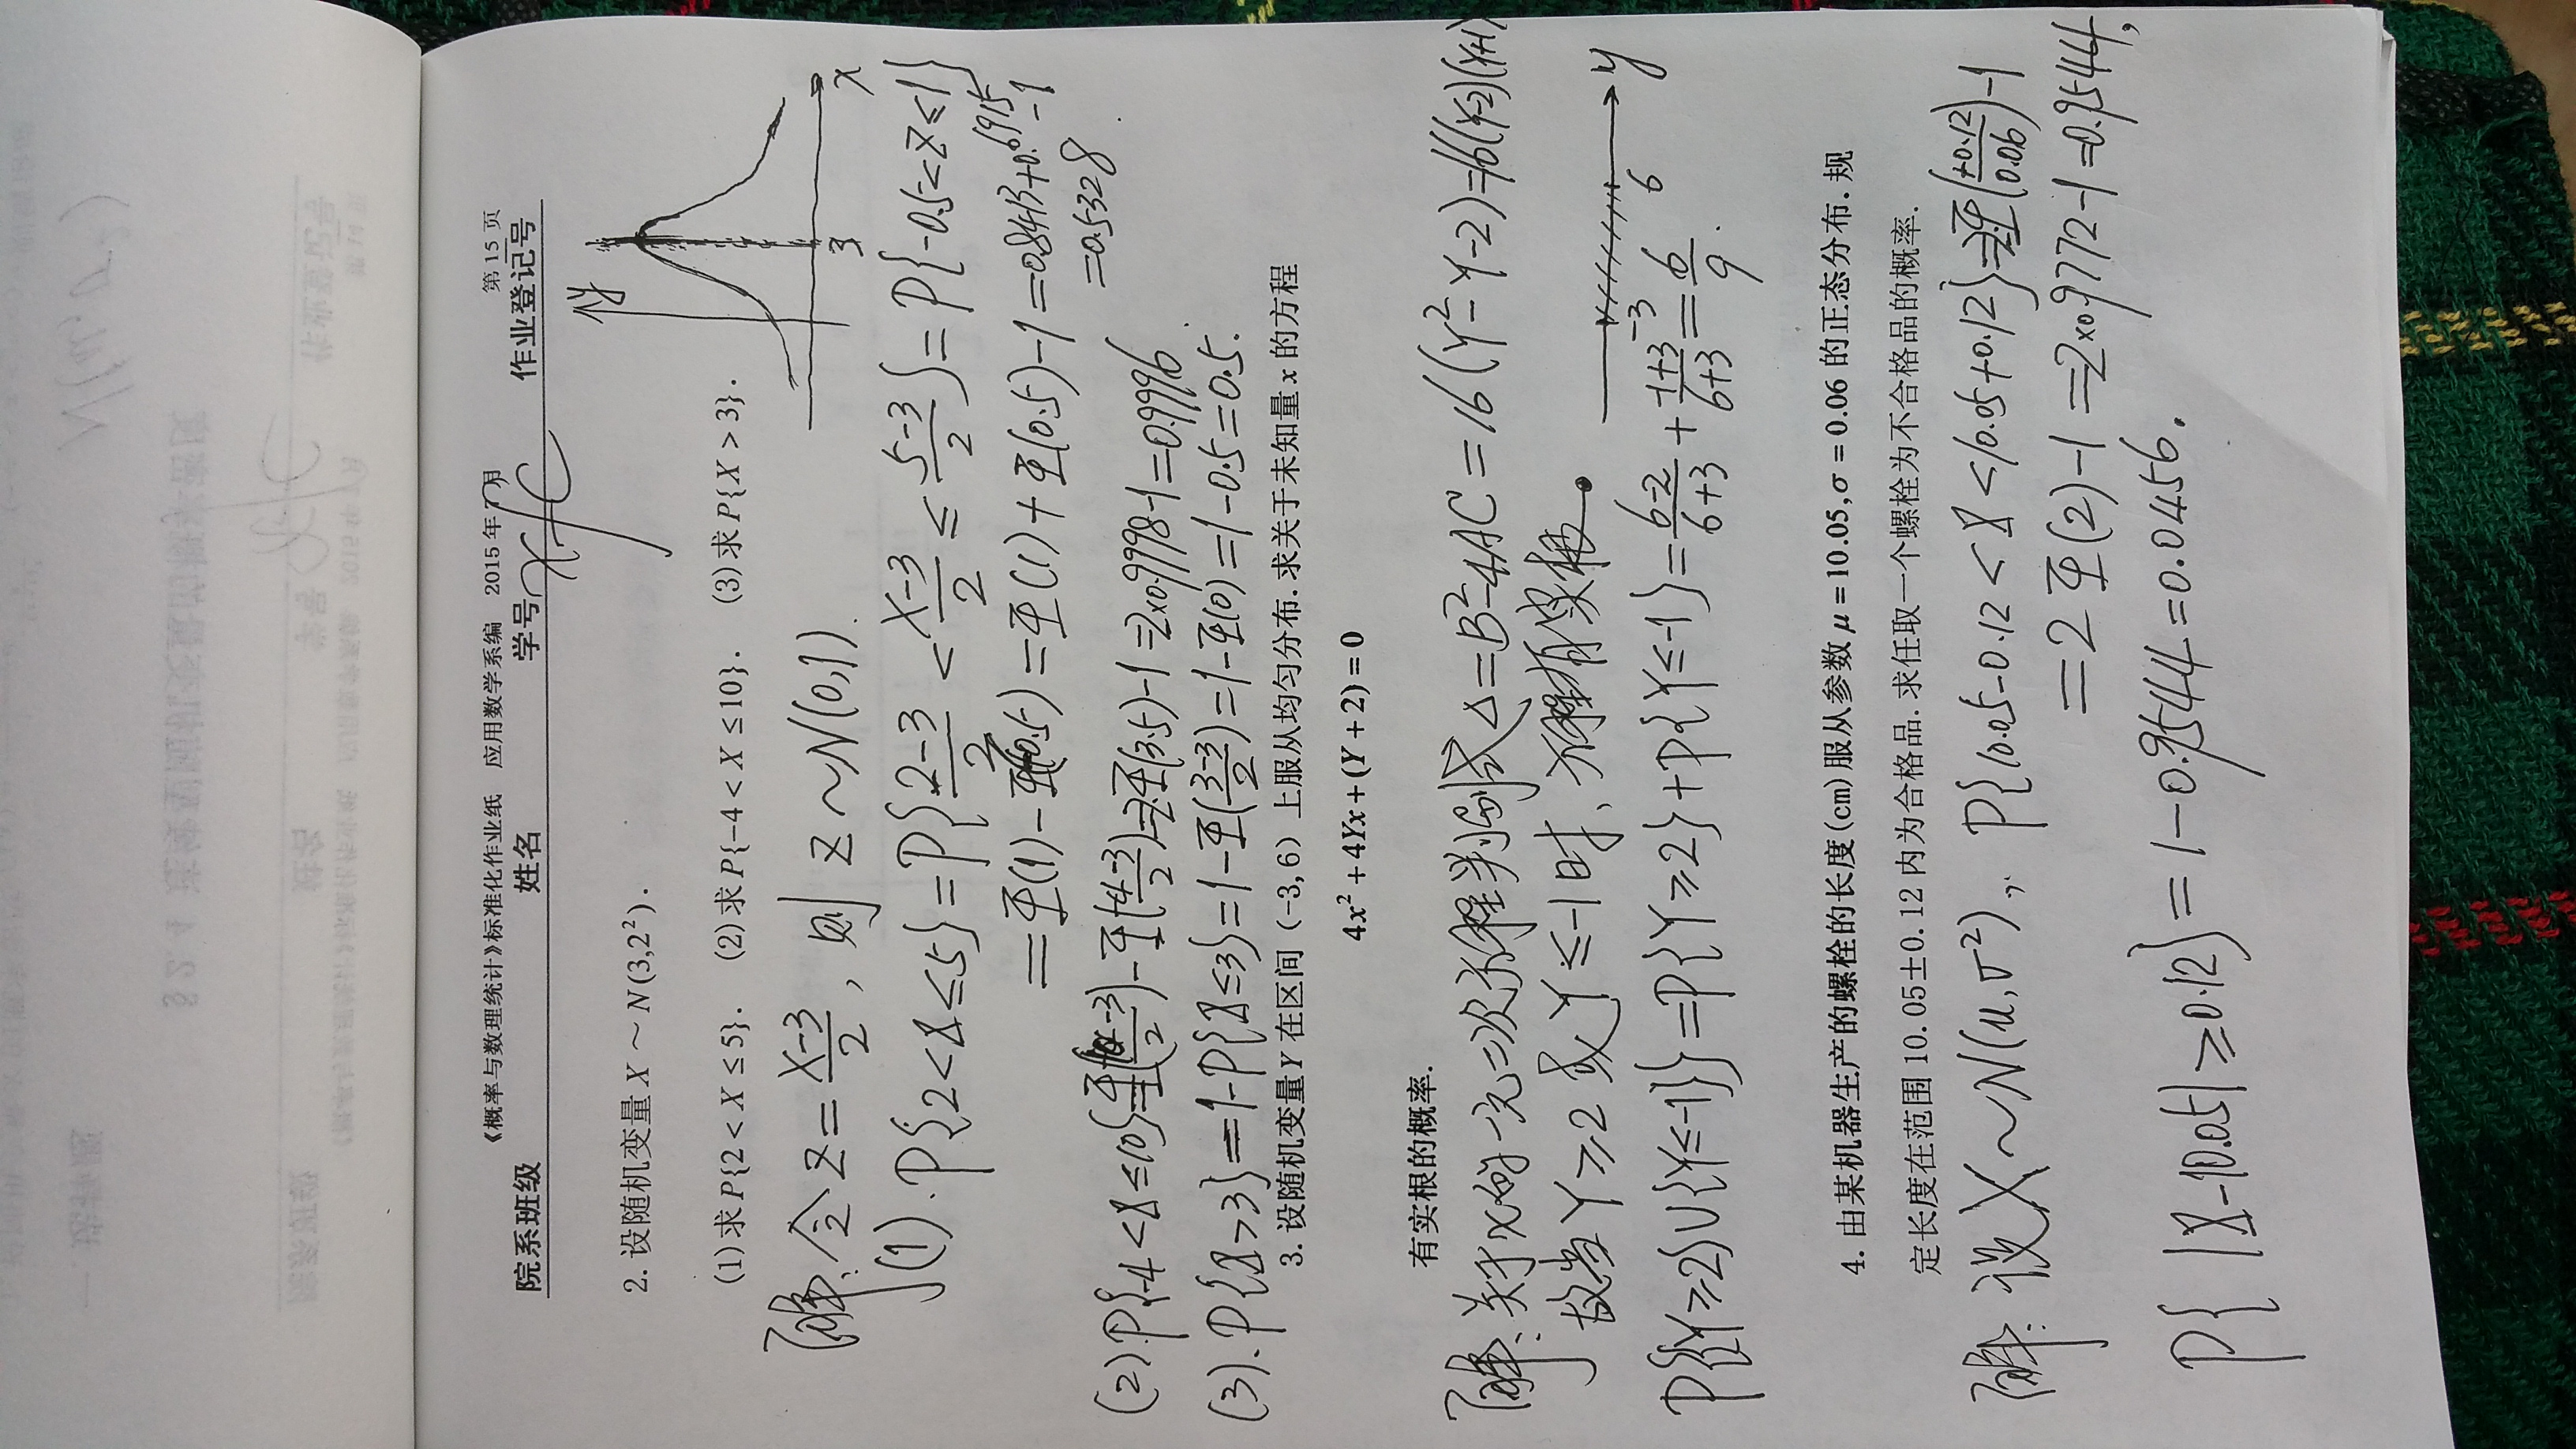 《概率与数理统计》标准化作业纸 应用数学系编 2015年7月 第15页
院系班级 姓名 学号 作业登记号
y
2. 设随机变量 X ~ N(3,2²).
(1)求P{2 < X ≤ 5}. (2)求P{-4 < X ≤ 10}. (3)求P{X > 3}.
3 x
解: 令 Z = (X-3)/2, 则 Z ~ N(0,1).
(1). P{2 < X ≤ 5} = P{(2-3)/2 < (X-3)/2 ≤ (5-3)/2} = P{-0.5 < Z ≤ 1}
= Φ(1) - Φ(-0.5) = Φ(1) + Φ(0.5) - 1 = 0.8413 + 0.6915 - 1
= 0.5328.
(2). P{-4 < X ≤ 10} = Φ((10-3)/2) - Φ((-4-3)/2) = 2Φ(3.5) - 1 = 2×0.9998 - 1 = 0.9996.
(3). P{X > 3} = 1 - P{X ≤ 3} = 1 - Φ((3-3)/2) = 1 - Φ(0) = 1 - 0.5 = 0.5.
3. 设随机变量Y在区间 (-3,6) 上服从均匀分布. 求关于未知量x的方程
4x² + 4Yx + (Y + 2) = 0
有实根的概率.
解: 关于x的一元二次方程判别式Δ = B² - 4AC = 16(Y² - Y - 2) = 16(Y-2)(Y+1)
故当Y ≥ 2 或 Y ≤ -1时, 方程有实根。
-3 6 y
P{{Y ≥ 2} ∪ {Y ≤ -1}} = P{Y ≥ 2} + P{Y ≤ -1} = (6-2)/(6+3) + (-1+3)/(6+3) = 6/9.
4. 由某机器生产的螺栓的长度(cm)服从参数 μ = 10.05, σ = 0.06 的正态分布. 规
定长度在范围 10.05±0.12 内为合格品. 求任取一个螺栓为不合格品的概率.
解: 设 X ~ N(μ, σ²), P{10.05 - 0.12 < X < 10.05 + 0.12} = 2Φ(+0.12/0.06) - 1
= 2Φ(2) - 1 = 2×0.9772 - 1 = 0.9544,
P{|X - 10.05| ≥ 0.12} = 1 - 0.9544 = 0.0456.